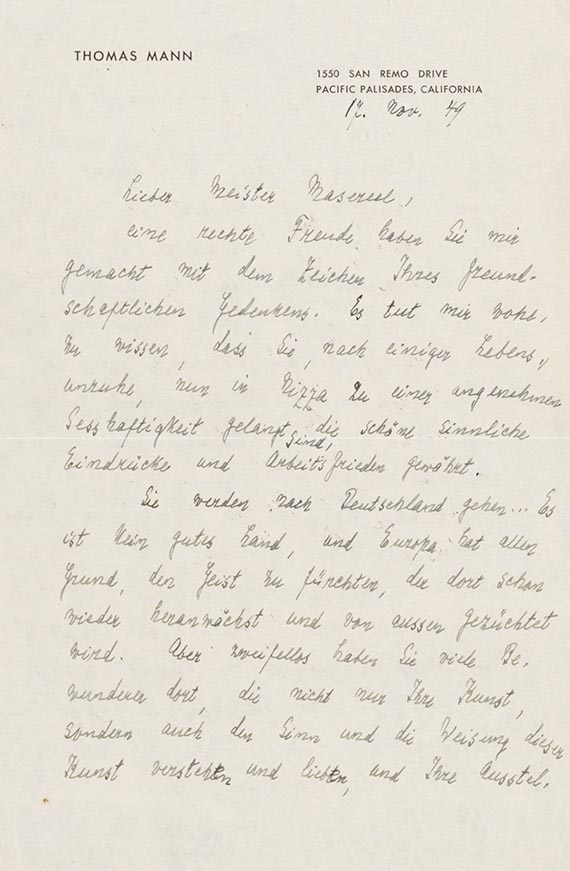 THOMAS MANN
1550 SAN REMO DRIVE
PACIFIC PALISADES, CALIFORNIA
17. Nov. 49
Lieber Meister Masereel,
eine rechte Freude haben Sie mir
gemacht mit dem Zeichen Ihres freund-
schaftlichen Gedenkens. Es tut mir wohl,
zu wissen, dass Sie, nach einiger Lebens-
unruhe, nun in Nizza zu einer angenehmen
Sesshaftigkeit gelangt sind, die schöne sinnliche
Eindrücke und Arbeitsfrieden gewährt.
Sie werden nach Deutschland gehen... Es
ist kein gutes Land, und Europa hat allen
Grund, den Geist zu fürchten, der dort schon
wieder heranwächst und von aussen gezüchtet
wird. Aber zweifellos haben Sie viele Be-
wunderer dort, die nicht nur Ihre Kunst,
sondern auch den Sinn und die Weisung dieser
Kunst verstehen und lieben, und Ihre Ausstel-